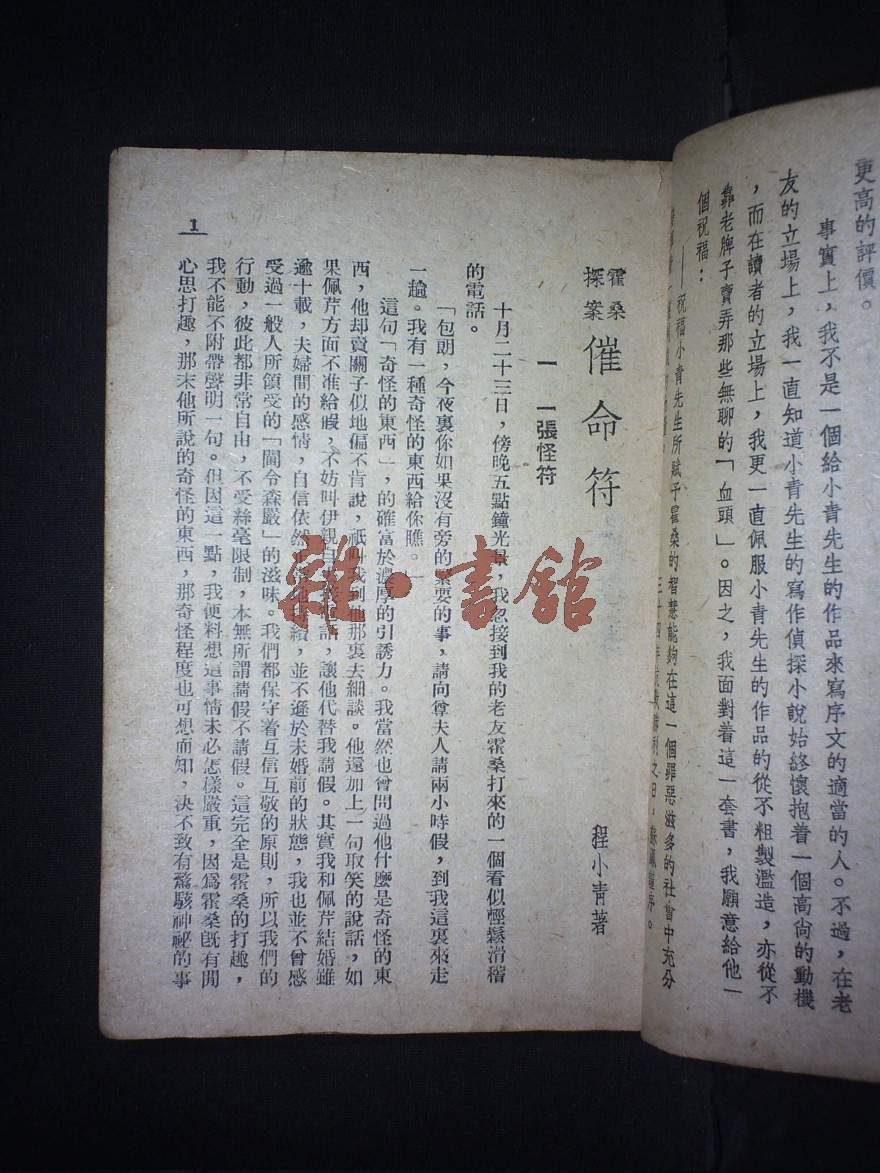 更高的評價。
事實上，我不是一個給小青先生的作品來寫序文的適當的人。不過，在老
友的立場上，我一直知道小青先生的寫作偵探小說始終懷抱着一個高尚的動機
，而在讀者的立場上，我更一直佩服小青先生的作品的從不粗製濫造，亦從不
靠老牌子賣弄那些無聊的「血頭」。因之，我面對着這一套書，我願意給他一
個祝福：
——祝福小青先生所賦予霍桑的智慧能夠在這一個罪惡滋多的社會中充分
利之日，
霍桑探案
催命符
程小青著
一 一張怪符
十月二十三日，傍晚五點鐘光景，我忽接到我的老友霍桑打來的一個看似輕鬆滑稽
的電話。
「包朗，今夜裏你如果沒有旁的緊要的事，請向尊夫人請兩小時假，到我這裏來走
一趟。我有一種奇怪的東西給你瞧。」
這句「奇怪的東西」，的確富於濃厚的引誘力。我當然也曾問過他什麼是奇怪的東
西，他却賣關子似地偏不肯說，祇叫我到他那裏去細談。他還加上一句取笑的說話，如
果佩芹方面不准給假，不妨叫伊親自話，讓他代替我請假。其實我和佩芹結婚雖
逾十載，夫婦間的感情，自信依然續，並不遜於未婚前的狀態，我也並不曾感
受過一般人所領受的「閫令森嚴」的滋味。我們都保守着互信互敬的原則，所以我們的
行動，彼此都非常自由，不受絲毫限制，本無所謂請假不請假。這完全是霍桑的打趣，
我不能不附帶聲明一句。但因這一點，我便料想這事情未必怎樣嚴重，因爲霍桑旣有閒
心思打趣，那末他所說的奇怪的東西，那奇怪程度也可想而知，決不致有驚駭神祕的事
1
雜·書館